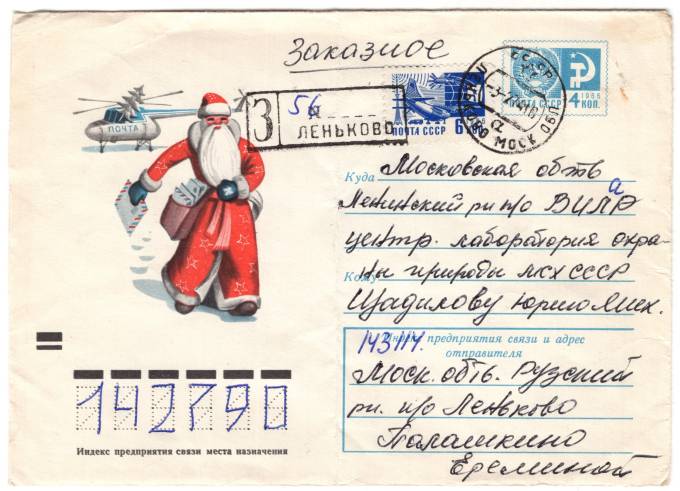 Заказное
ПОЧТА
З
56
ЛЕНЬКОВО
ПОЧТА СССР 6
1966
4 КОП.
СССР
МОСК
Куда Московская обть
Ленинский рн п/о ВИЛРа
центр. лаборатория охра-
Кому ны природы МКХ СССР
Щадилову Юрию Мих.
Индекс предприятия связи и адрес
отправителя
143114.
Моск. обть. Рузский
рн. п/о Леньково
Палашкино
Ереминой
142790
Индекс предприятия связи места назначения